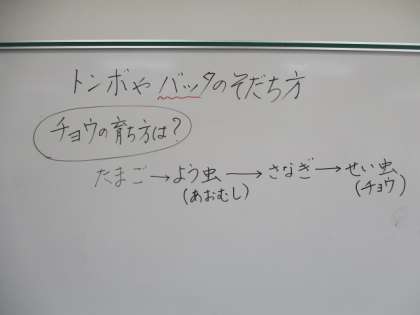 トンボや バッタのそだち方
チョウの育ち方は?
たまご→よう虫→さなぎ→せい虫
(あおむし) (チョウ)